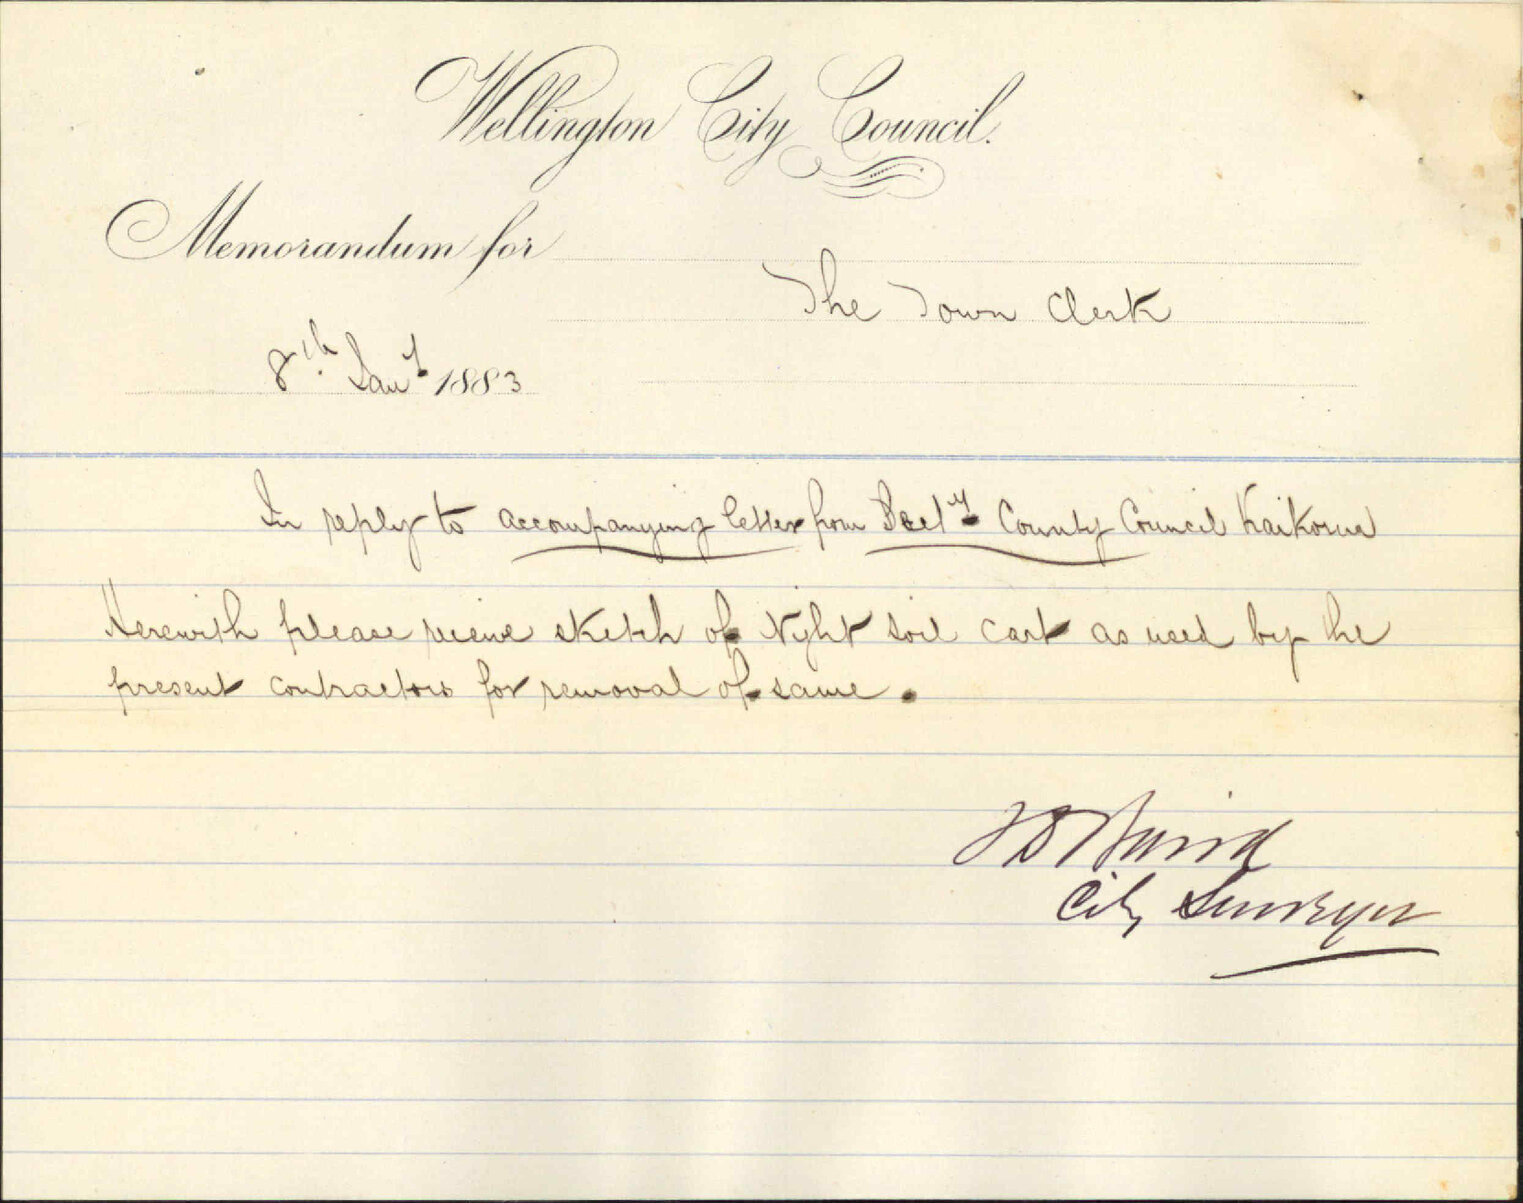 Wellington City Council.
Memorandum for
The Town Clerk
8th. Jany 1883
In reply to accompanying letter from Secty County Council
Herewith please recieve sketch of Night Soil Cart as used by the
present contractors for removal of same.
Baird
City Surveyor